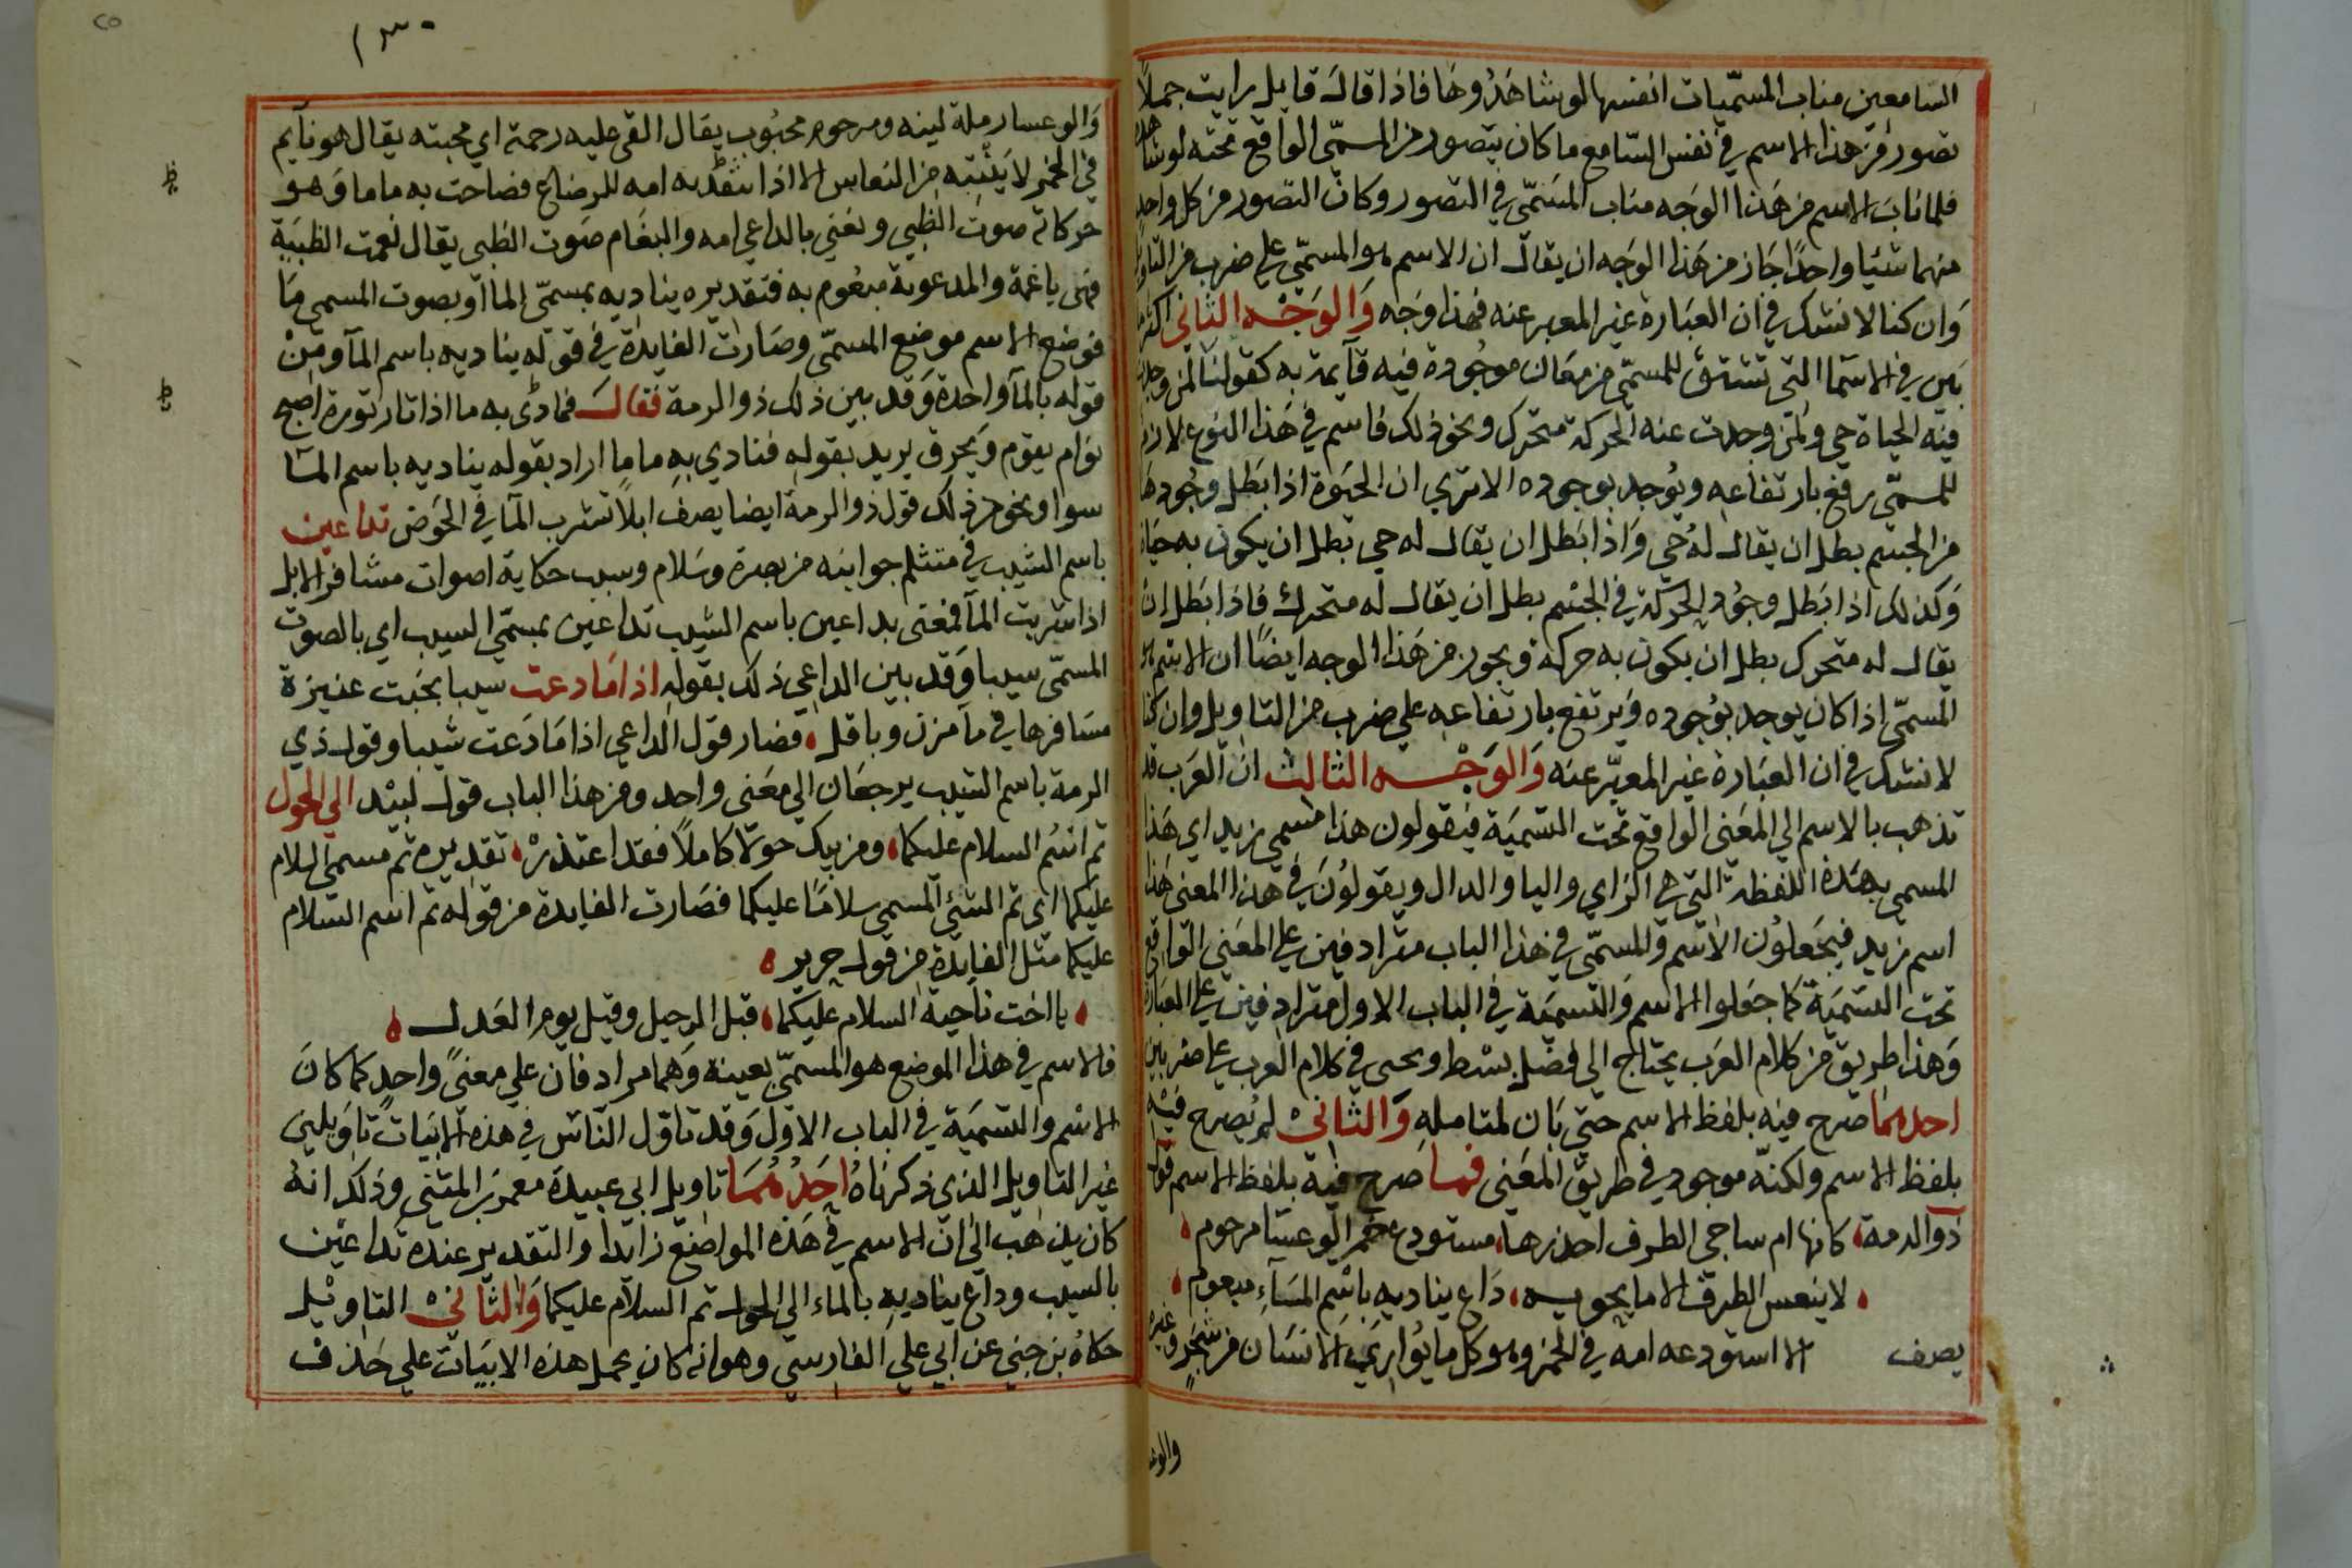 السامعين مناب المسميات انفسها لو شاهدوها فاذا قال قايل رايت جملا
تصور من هذا الاسم في نفس السامع ما كان يتصور من المسمّى الواقع تحته لو شاهده
فلما ناب الاسم من هذا الوجه مناب المسمّى في التصور وكان التصور من كل واحد
منهما شيا واحدًا جاز من هذا الوجه ان يقال ان الاسم هو المسمّى على ضرب من التاويل
وان كنا لا نشك في ان العبارة غير المعبر عنه فهذا وجه والوجه الثاني
في الاسما التي تشتق للمسمّى من معان موجودة فيه قآيمة به كقولنا لمن وجدت
فيه الحياة حي ولمن وجدت عنه الحركة متحرك ونحو ذلك فاسم في هذا النوع لازم
للمسمّى يرفع بارتفاعه ويوجد بوجوده الا تري ان الحيوة اذا بطل وجودها
من الجسم بطل ان يقال له حي واذا بطل ان يقال له حي بطل ان يكون به حياة
وكذلك اذا بطل وجود الحركة في الجسم بطل ان يقال له متحرك فاذا بطل ان
يقال له متحرك بطل ان يكون به حركة ويجوز من هذا الوجه ايضًا ان الاسم هو
المسمّى اذا كان يوجد بوجوده ويرتفع بارتفاعه علي ضرب من التاويل وان كنا
لا نشك في ان العبارة غير المعبّر عنه والوجه الثالث ان العرب قد
تذهب بالاسم الي المعني الواقع تحت التسمية فيقولون هذا مسمي زيد اي هذا
المسمي بهذه اللفظة التي هي الزاي واليا والدال ويقولون في هذا المعني هذا
اسم زيد فيجعلون الاسم والمسمّى في هذا الباب مترادفين علي المعني الواقع
تحت التسمية كما جعلوا الاسم والتسمية في الباب الاول مترادفين علي العبارة
وهذا طريق من كلام العرب يحتاج الي فضل بسط ويحى في كلام العرب علي ضربين
احدهما صرح فيه بلفظ الاسم حتي بان لمتامله والثاني لم يصرح فيه
بلفظ الاسم ولكنه موجود في طريق المعني فمما صرح فيه بلفظ الاسم قول
ذو الرمة كانها ام ساجي الطرف احذرها مستودع خمر الوعسا مرحوم
لا ينعس الطرف الا ما يحوبه داع يناديه باسم المآء مبعوم
يصف الا استودعه امه في الخمر وهو كل ما يواري الانسان من شجر وغيره
والوعـ
١٣٠
والوعسا رملة لينه ومرحوم محبوب يقال القى عليه رحمة اي محبته يقال هو نآيم
في الخمر لا ينتبه من النعاس الا اذا تفقدته امه للرضاع فصاحت به ماما وهو
حركاته صوت الظبي ونعني بالداعي امه والبغام صوت الظبي يقال نغمت الظبية
فهى باغمة والمدعو به مبغوم به فتقديره يناديه بمسمّى الما او بصوت المسمى ما
فوضع الاسم موضع المسمّى وصارت الفايدة في قوله يناديه باسم المآ ومن
قوله بالمآ واحدة وقد بين ذلك ذو الرمة فقال فنادى به ما اذا ثار ثورة اصبح
نوام يقوم ويحرق يريد بقوله فنادي به ما ما اراد بقوله يناديه باسم المآ
سوا ونحو من ذلك قول ذو الرمة ايضا يصف ابلًا تشرب المآ في الحوض تداعين
باسم الشيب في متثلم جوابنه من بصرة وسلام وسيب حكاية اصوات مشافر الابل
اذا شربت المآ فمعنى بداعين باسم الشيب تداعين بمسمّى السيب اي بالصوت
المسمّى سيبا وقد بين الداعي ذلك بقوله اذا ما دعت سيبا بجنبت عنيزة
مسافرها في مآ مزن وباقل فصار قول الداعي اذا ما دعت شيبا وقول ذي
الرمة باسم الشيب يرجعان الي معنى واحد ومن هذا الباب قول لبيد الي الحول
ثم اسم السلام عليكما ومن يبك حولا كاملًا فقد اعتذر تقديره ثم مسمى السلام
عليكما اي ثم الشيئ المسمي سلامًا عليكما فصارت الفايدة من قوله ثم اسم السلام
عليكما مثل الفايدة من قول جرير
يا اخت ناجية السلام عليكما قبل الرحيل وقبل يوم العدل
فالاسم في هذا الموضع هو المسمّى بعينه وهما مرادفان علي معنًى واحد كما كان
الاسم والتسمية في الباب الاول وقد تاول الناس في هذه الابيات تاويلين
غير التاويل الذي ذكرناه احدهما تاويل ابي عبيدة معمر بن المثنى وذلك انه
كان يذهب الي ان الاسم في هذه المواضع زايدا والتقدير عنده تداعين
بالسيب وداع يناديه بالماء الي الحول ثم السلام عليكما والثاني التاويل
حكاه بن جني عن ابي علي الفارسي وهو انه كان يحمل هذه الابيات علي حذف